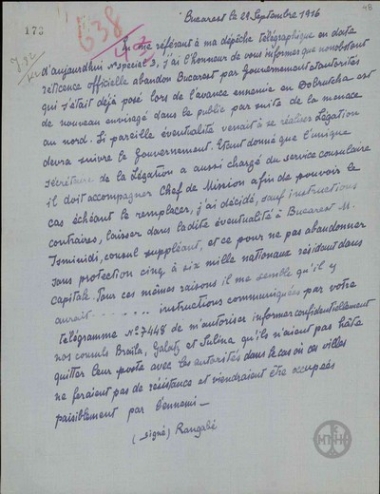 48
Bucarest le 29 Septembre 1916
638
173
En me référant à ma dépêche télégraphique en date
d'aujourdhui N° special 3, j'ai l'honneur de vous informer que nonobstant
reticence officielle abandon Bucarest par Gouvernement et autorités
qui s'était déjà posé lors de l'avance ennemie en Dobrutcha est
de nouveau envisagé dans le public par suite de la menace
au nord. Si pareille éventualité venait à se réaliser Légation
devra suivre le Gouvernement. Etant donné que l'unique
secrétaire de la Légation a aussi chargé du service consulaire
il doit accompagner Chef de Mission afin de pouvoir le
cas échéant le remplacer, j'ai décidé, sauf instructions
contraires, laisser dans ladite éventualité à Bucarest M.
consul suppléant, et ce pour ne pas abandonner
sans protection cinq à six mille nationaux résidant dans
capitale. Pour ces mêmes raisons il me semble qu'il y
aurait ........ instructions communiquées par votre
télégramme N° 7448 de m'autoriser informer confidentiellement
nos consuls Braila, Galatz et Sulina qu'ils n'aient pas hâte
quitter leur poste avec les autorités dans le cas où ces villes
ne feraient pas de résistance et viendraient être occupées
paisiblement par l'ennemi —
(signé) Rangabé